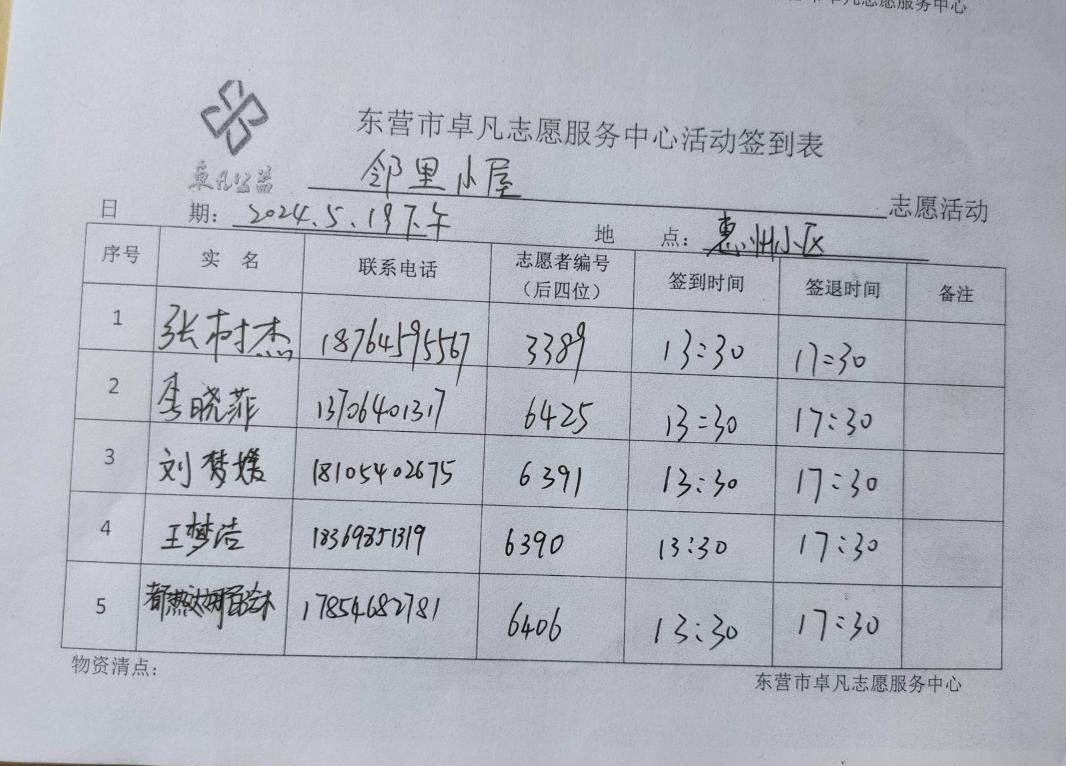 志愿服务中心
卓凡公益
东营市卓凡志愿服务中心活动签到表
邻里小屋 志愿活动
日 期: 2024.5.19下午 地 点: 惠州小区
序号 实 名 联系电话 志愿者编号(后四位) 签到时间 签退时间 备注
1 张树杰 18764595567 3389 13:30 17:30
2 李晓菲 13706401317 6425 13:30 17:30
3 刘梦媛 18105402675 6391 13:30 17:30
4 王梦洁 18369851319 6390 13:30 17:30
5 17854682781 6406 13:30 17:30
物资清点:
东营市卓凡志愿服务中心